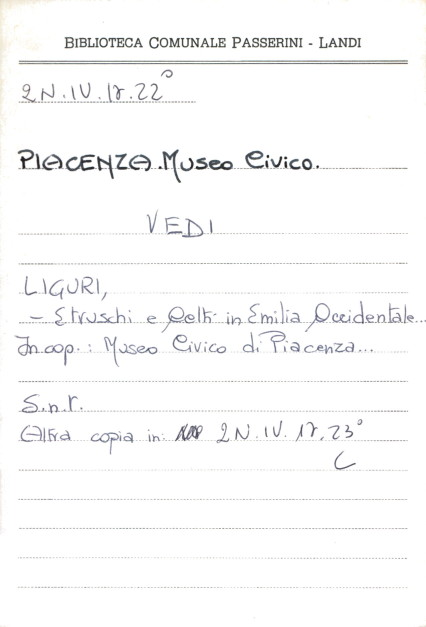 BIBLIOTECA COMUNALE PASSERINI - LANDI
2N.IV.17.22°
PIACENZA.Museo Civico.
VEDI
LIGURI,
- Etruschi e Celti in Emilia Occidentale...
In cop.: Museo Civico di Piacenza...
S.n.t.
Altra copia in: 2N.IV.17.23°